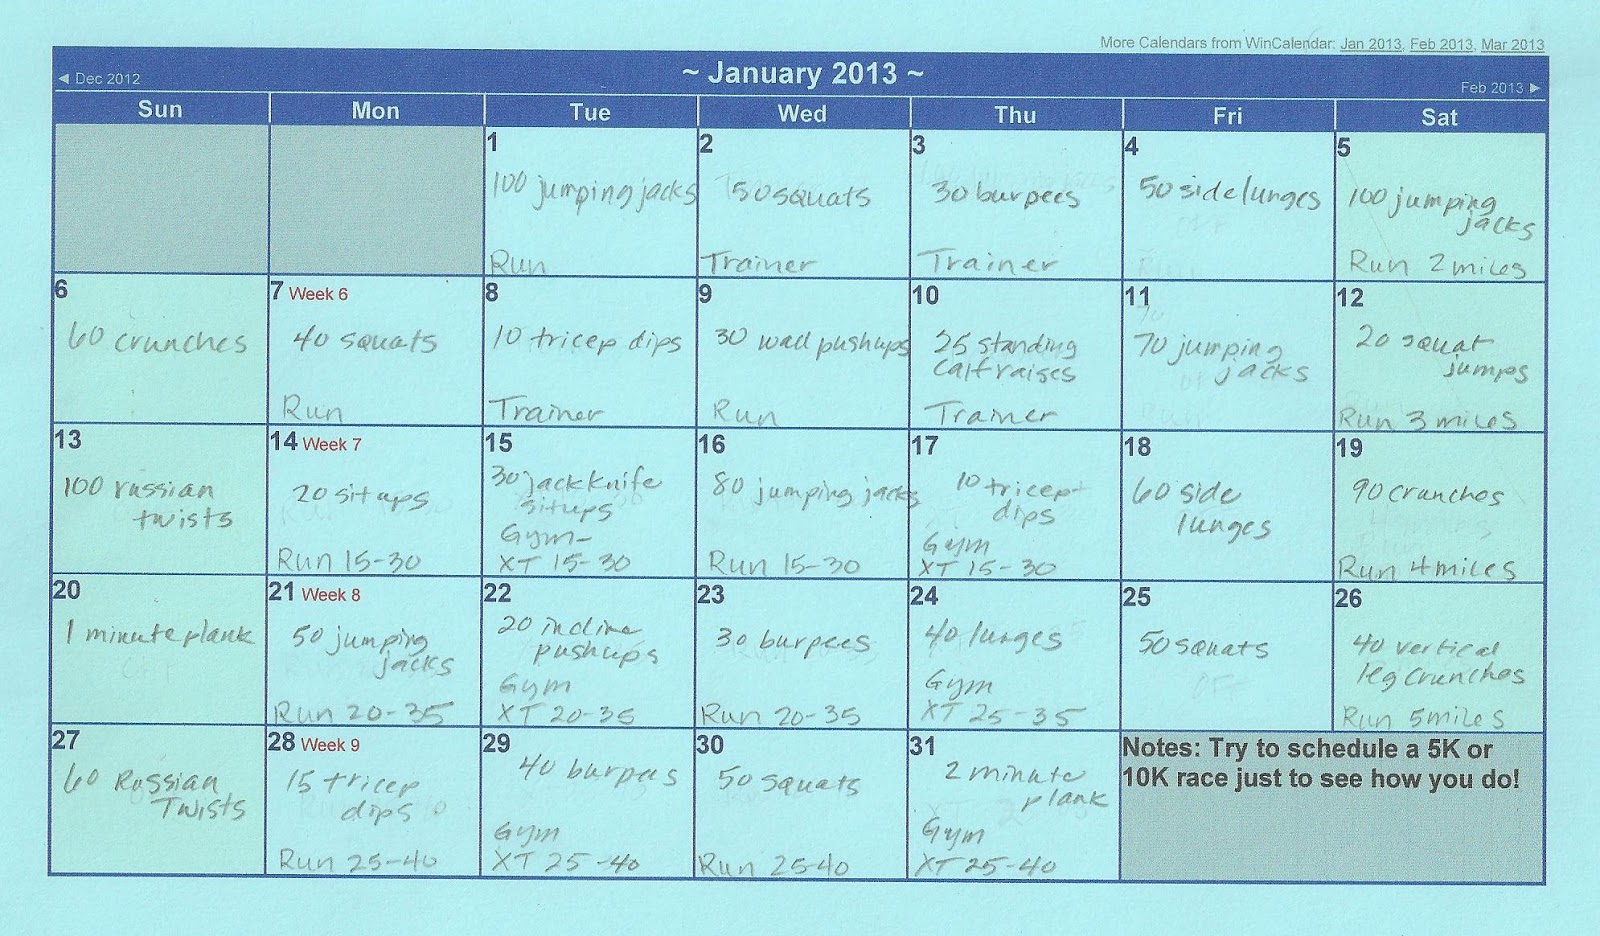 More Calendars from WinCalendar: Jan 2013, Feb 2013, Mar 2013
◄ Dec 2012
~ January 2013 ~
Feb 2013 ►
Sun Mon Tue Wed Thu Fri Sat
1
100 jumping jacks
Run
2
50 squats
Trainer
3
30 burpees
Trainer
4
50 side lunges
5
100 jumping
jacks
Run 2 miles
6
60 crunches
7 Week 6
40 squats
Run
8
10 tricep dips
Trainer
9
30 wall pushups
Run
10
25 standing
calf raises
Trainer
11
70 jumping
jacks
12
20 squat
jumps
Run 3 miles
13
100 russian
twists
14 Week 7
20 situps
Run 15-30
15
30 jackknife
situps
Gym-
XT 15-30
16
80 jumping jacks
Run 15-30
17
10 tricep
dips
Gym
XT 15-30
18
60 side
lunges
19
90 crunches
Run 4 miles
20
1 minute plank
21 Week 8
50 jumping
jacks
Run 20-35
22
20 incline
pushups
Gym
XT 20-35
23
30 burpees
Run 20-35
24
40 lunges
Gym
XT 25-35
25
50 squats
26
40 vertical
leg crunches
Run 5 miles
27
60 Russian
Twists
28 Week 9
15 tricep
dips
Run 25-40
29
40 burpees
Gym
XT 25-40
30
50 squats
Run 25-40
31
2 minute
plank
Gym
XT 25-40
Notes: Try to schedule a 5K or
10K race just to see how you do!